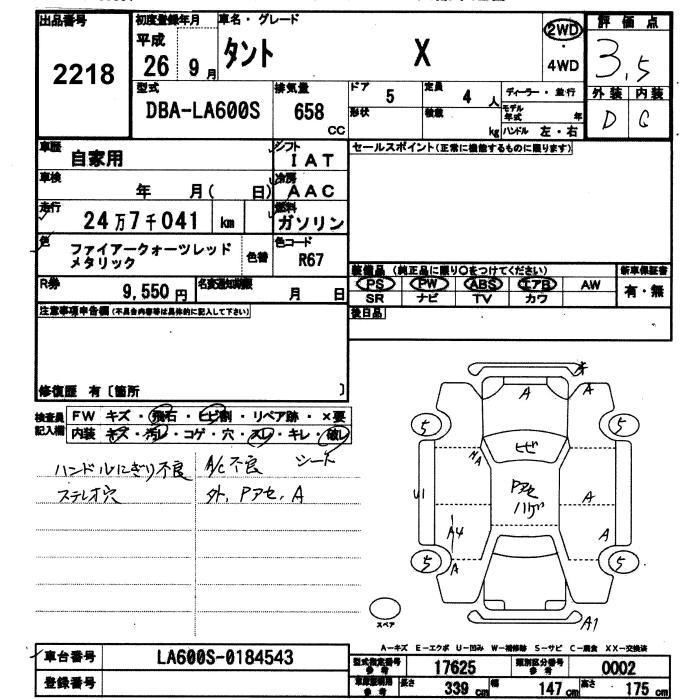 出品番号
2218
初度登録年月
平成
26 9月
車名・グレード
タント X
2WD
・
4WD
評価点
3.5
外装 内装
D C
型式
DBA-LA600S
排気量
658
cc
ドア
5
定員
4 人
形状
積載
kg
ディーラー・並行
モデル年式 年
ハンドル 左・右
車歴
自家用
シフト
IAT
車検
年 月( 日)
冷房
AAC
走行
24万7千041 km
燃料
ガソリン
色
ファイアークォーツレッド
メタリック
色替
色コード
R67
R券
9,550円
名変通知期限
月 日
セールスポイント(正常に機能するものに限ります)
装備品 (純正品に限り○をつけてください)
PS PW ABS エアB AW
SR ナビ TV カワ
新車保証書
有・無
後日品
注意事項申告欄(不具合内容等は具体的に記入して下さい)
修復歴 有〔箇所 〕
検査員記入欄
FW キズ・飛石・ヒビ割・リペア跡・×要
内装 キズ・汚レ・コゲ・穴・スレ・キレ・破レ
ハンドルにぎり不良 A/C不良 シート
ステレオ穴 外、Pアセ、A
A
A
5 5
ヒビ
U1
Pアセ
ハゲ
A
A4
A
A
5 5
A1
スペア
A-キズ E-エクボ U-凹み W-補修跡 S-サビ C-腐食 XX-交換済
車台番号
LA600S-0184543
登録番号
型式指定番号
参考
17625
類別区分番号
参考
0002
長さ 339 cm 幅 147 cm 高さ 175 cm